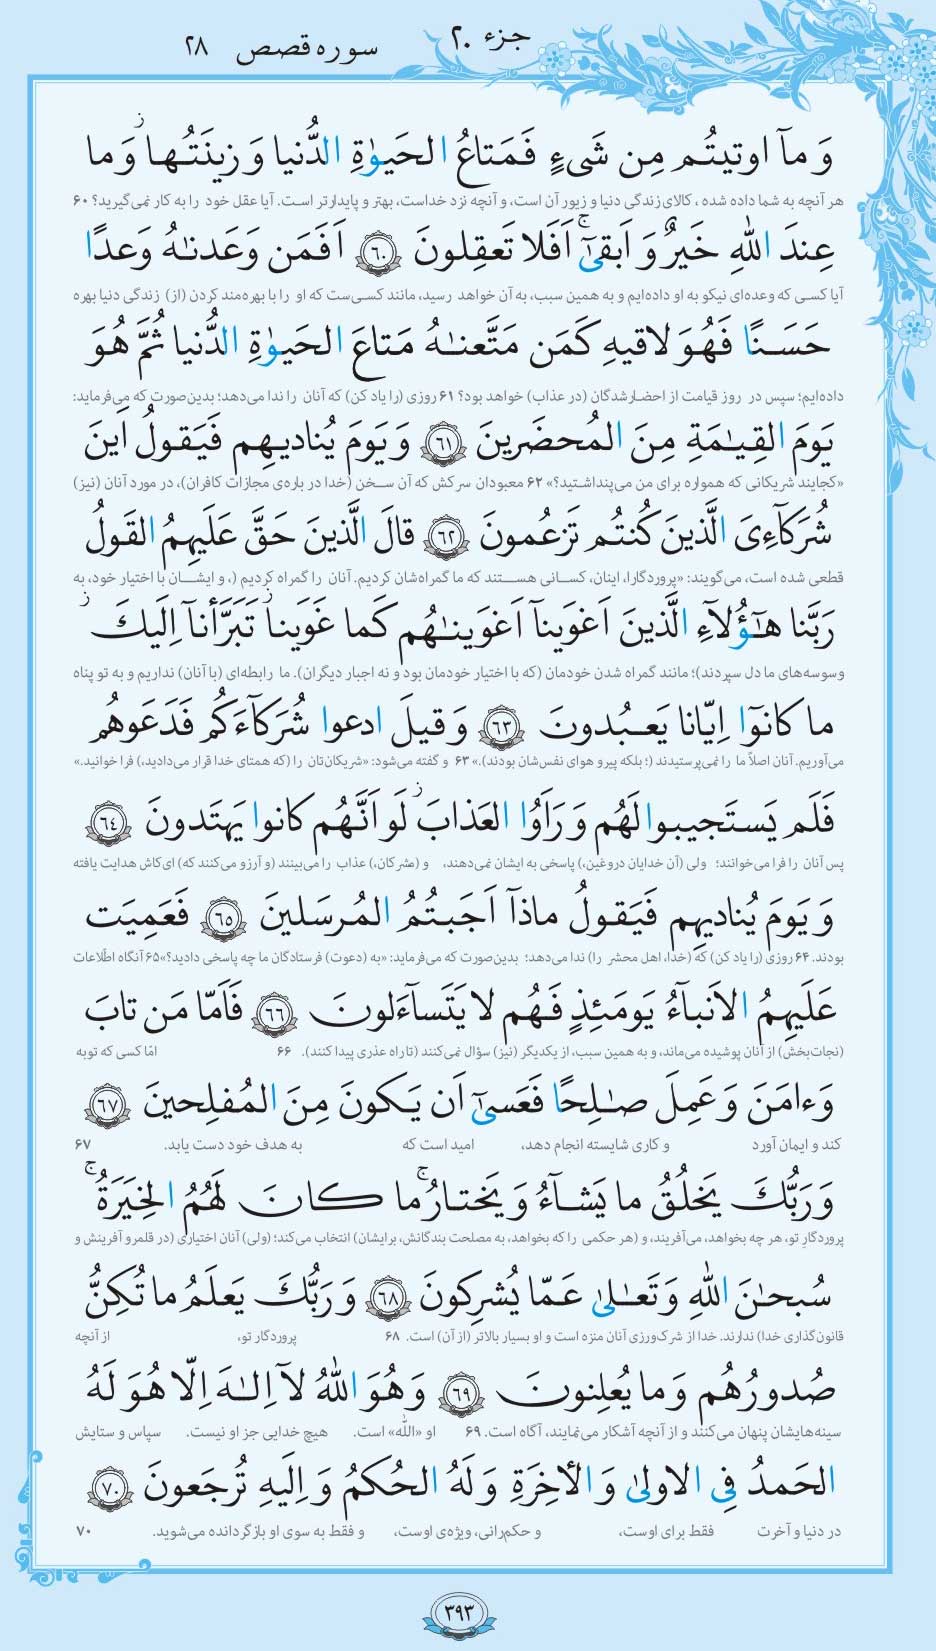 جزء ۲۰
سوره قصص ۲۸
وَ مآ اوتیتُم مِن شَیءٍ فَمَتاعُ الحَیوٰةِ الدُّنیا وَ زینَتُها ۚ وَ ما
هر آنچه به شما داده شده، کالای زندگی دنیا و زیور آن است، و آنچه نزد خداست، بهتر و پایدارتر است. آیا عقل خود را به کار نمی‌گیرید؟ ۶۰
عِندَ اللّٰهِ خَیرٌ وَ اَبقیٰٓ ۚ اَفَلا تَعقِلونَ ﴿٦٠﴾ اَفَمَن وَعَدنـٰهُ وَعدًا
آیا کسی که وعده‌ای نیکو به او داده‌ایم و به همین سبب، به آن خواهد رسید، مانند کسی‌ست که او را با بهره‌مند کردن (از) زندگی دنیا بهره
حَسَنًا فَهُوَ لاقیهِ کَمَن مَتَّعنـٰهُ مَتاعَ الحَیوٰةِ الدُّنیا ثُمَّ هُوَ
داده‌ایم؛ سپس در روز قیامت از احضارشدگان (در عذاب) خواهد بود؟ ۶۱ روزی (را یاد کن) که آنان را ندا می‌دهد؛ بدین‌صورت که می‌فرماید:
یَومَ القِیـٰمَةِ مِنَ المُحضَرینَ ﴿٦١﴾ وَ یَومَ یُنادیهِم فَیَقولُ اَینَ
«کجایند شریکانی که همواره برای من می‌پنداشتید؟» ۶۲ معبودان سرکش که آن سخن (خدا در باره‌ی مجازات کافران)، در مورد آنان (نیز)
شُرَکآءِیَ الَّذینَ کُنتُم تَزعُمونَ ﴿٦٢﴾ قالَ الَّذینَ حَقَّ عَلَیهِمُ القَولُ
قطعی شده است، می‌گویند: «پروردگارا، اینان، کسانی هستند که ما گمراه‌شان کردیم. آنان را گمراه کردیم (، و ایشان با اختیار خود، به
رَبَّنا هـٰٓؤُلآءِ الَّذینَ اَغوَینآ اَغوَینـٰهُم کَما غَوَینا ۖ تَبَرَّأنآ اِلَیكَ ۖ
وسوسه‌های ما دل سپردند)؛ مانند گمراه شدن خودمان (که با اختیار خودمان بود و نه اجبار دیگران). ما رابطه‌ای (با آنان) نداریم و به تو پناه
ما کانوٓا اِیّانا یَعبُدونَ ﴿٦٣﴾ وَ قیلَ ادعوا شُرَکآءَکُم فَدَعَوهُم
می‌آوریم. آنان اصلاً ما را نمی‌پرستیدند (؛ بلکه پیرو هوای نفس‌شان بودند).» ۶۳ و گفته می‌شود: «شریکان‌تان را (که همتای خدا قرار می‌دادید،) فرا خوانید.»
فَلَم یَستَجیبوا لَهُم وَ رَاَوُا العَذابَ ۚ لَو اَنَّهُم کانوا یَهتَدونَ ﴿٦٤﴾
پس آنان را فرا می‌خوانند؛ ولی (آن خدایان دروغین،) پاسخی به ایشان نمی‌دهند، و (مشرکان،) عذاب را می‌بینند (و آرزو می‌کنند که) ای‌کاش هدایت یافته
وَ یَومَ یُنادیهِم فَیَقولُ ماذآ اَجَبتُمُ المُرسَلینَ ﴿٦٥﴾ فَعَمِیَت
بودند. ۶۴ روزی (را یاد کن) که (خدا، اهل محشر را) ندا می‌دهد؛ بدین‌صورت که می‌فرماید: «به (دعوت) فرستادگان ما چه پاسخی دادید؟» ۶۵ آنگاه اطّلاعات
عَلَیهِمُ الاَنبآءُ یَومَئِذٍ فَهُم لا یَتَسآءَلونَ ﴿٦٦﴾ فَاَمّا مَن تابَ
(نجات‌بخش) از آنان پوشیده می‌ماند، و به همین سبب، از یکدیگر (نیز) سؤال نمی‌کنند (تا راه عذری پیدا کنند). ۶۶ امّا کسی که توبه
وَ ءامَنَ وَ عَمِلَ صـٰلِحًا فَعَسیٰٓ اَن یَکونَ مِنَ المُفلِحینَ ﴿٦٧﴾
کند و ایمان آورد و کاری شایسته انجام دهد، امید است که به هدف خود دست یابد. ۶۷
وَ رَبُّكَ یَخلُقُ ما یَشآءُ وَ یَختارُ ۗ ما کانَ لَهُمُ الخِیَرَةُ ۚ
پروردگار تو، هر چه بخواهد، می‌آفریند، و (هر حکمی را که بخواهد، به مصلحت بندگانش، برایشان) انتخاب می‌کند؛ (ولی) آنان اختیاری (در قلمرو آفرینش و
سُبحـٰنَ اللّٰهِ وَ تَعـٰلیٰ عَمّا یُشرِکونَ ﴿٦٨﴾ وَ رَبُّكَ یَعلَمُ ما تُکِنُّ
قانون‌گذاری خدا) ندارند. خدا از شرک‌ورزی آنان منزه است و او بسیار بالاتر (از آن) است. ۶۸ پروردگار تو، از آنچه
صُدورُهُم وَ ما یُعلِنونَ ﴿٦٩﴾ وَ هُوَ اللّٰهُ لآ اِلـٰهَ اِلّا هُوَ لَهُ
سینه‌هایشان پنهان می‌کنند و از آنچه آشکار می‌نمایند، آگاه است. ۶۹ او «الله» است. هیچ خدایی جز او نیست. سپاس و ستایش
الحَمدُ فِی الاولیٰ وَ الأخِرَةِ وَ لَهُ الحُکمُ وَ اِلَیهِ تُرجَعونَ ﴿٧٠﴾
در دنیا و آخرت فقط برای اوست، و حکم‌رانی، ویژه‌ی اوست، و فقط به سوی او بازگردانده می‌شوید. ۷۰
۳۹۳